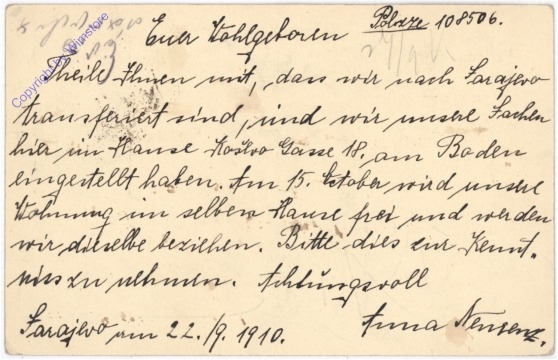 Euer Wohlgeboren Polizze 108506.
Theile Ihnen mit, dass wir nach Sarajevo
transferiert sind, und wir unsere Sachen
hier im Hause Koševo Gasse 18. am Boden
eingestellt haben. Am 15. October wird unsere
Wohnung im selben Hause frei und werden
wir dieselbe beziehen. Bitte dies zur Kennt-
niss zu nehmen. Achtungsvoll
Sarajevo am 22./9. 1910. Anna
Copyright by Wimstore